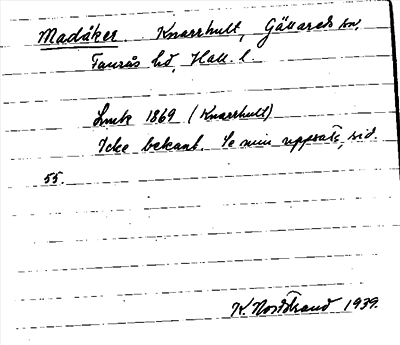 Madåker Knarrhult, Gällareds sn,
Faurås hd, Hall. l.
Lmk 1869 (Knarrhult)
Icke bekant. Se min uppsats, sid.
55.
K. Nordstrand 1939.